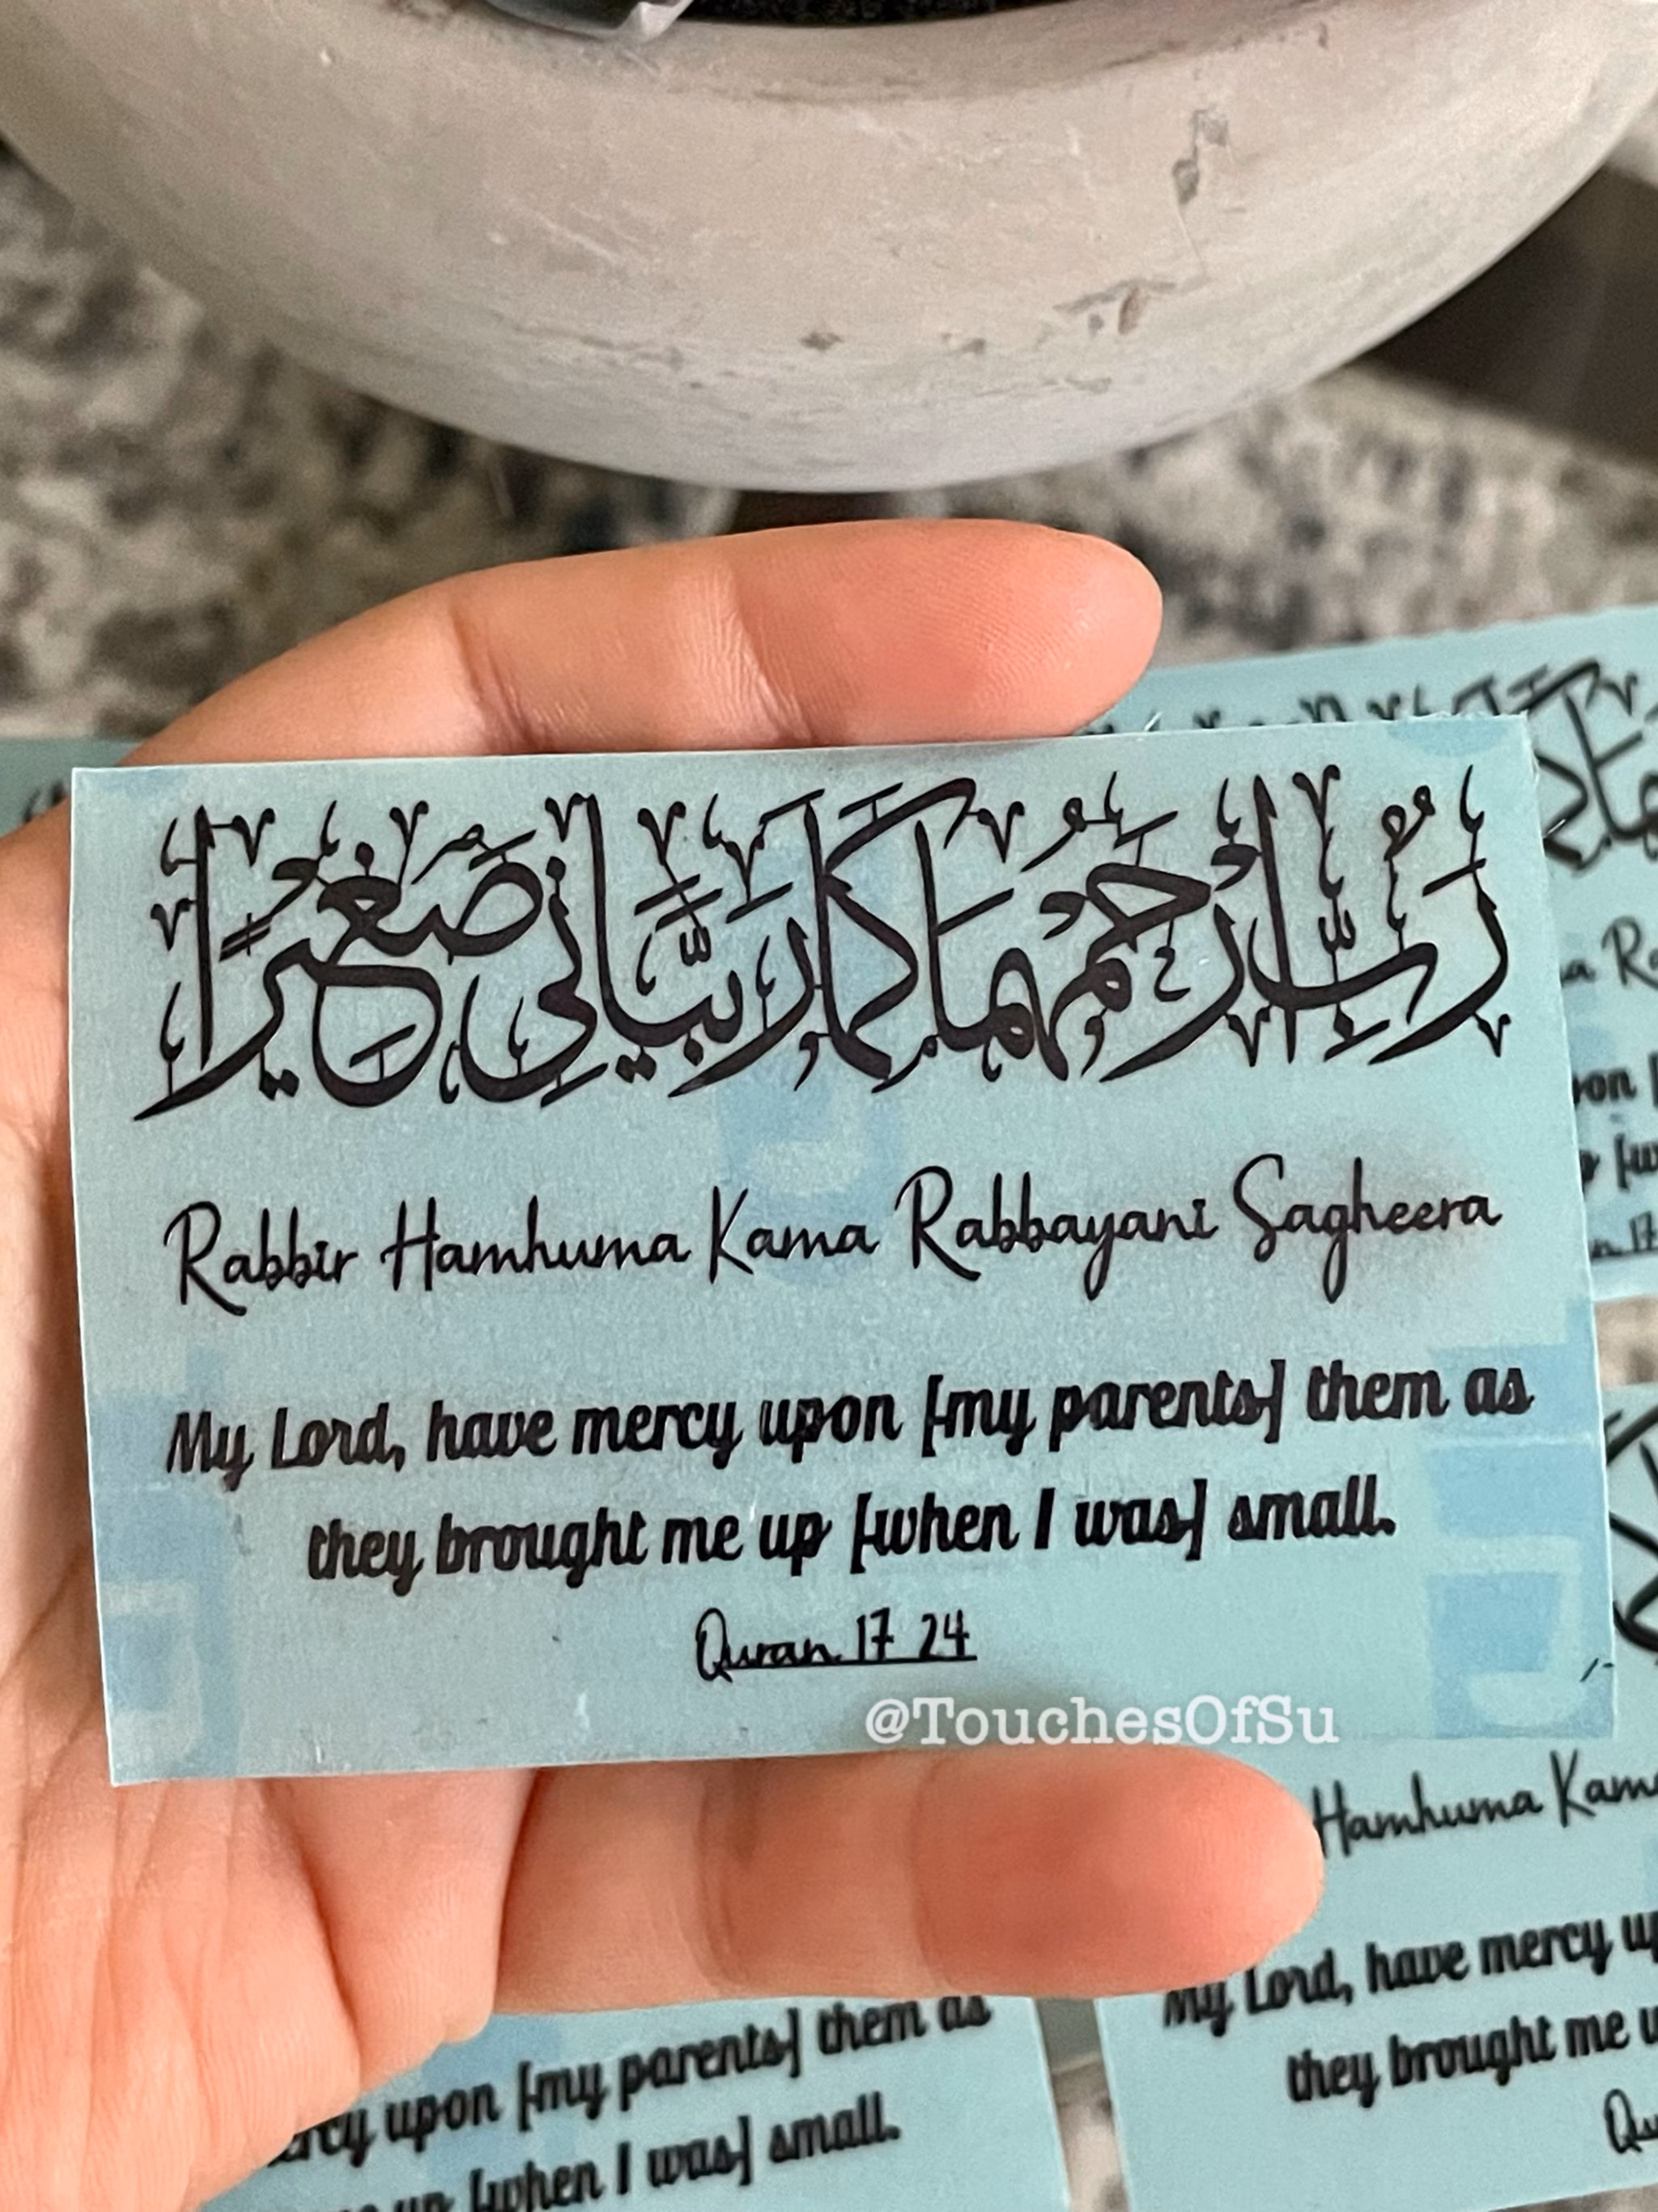 رَبِّ ارْحَمْهُمَا كَمَا رَبَّيَانِي صَغِيرًا
Rabbir Hamhuma Kama Rabbayani Sagheera
My Lord, have mercy upon [my parents] them as
they brought me up [when I was] small.
Quran 17 24
@TouchesOfSu
a Ra
on [
[w
n 17
Hamhuma Kama
My Lord, have mercy up
they brought me u
Qu
rcy upon [my parents] them as
up [when I was] small.